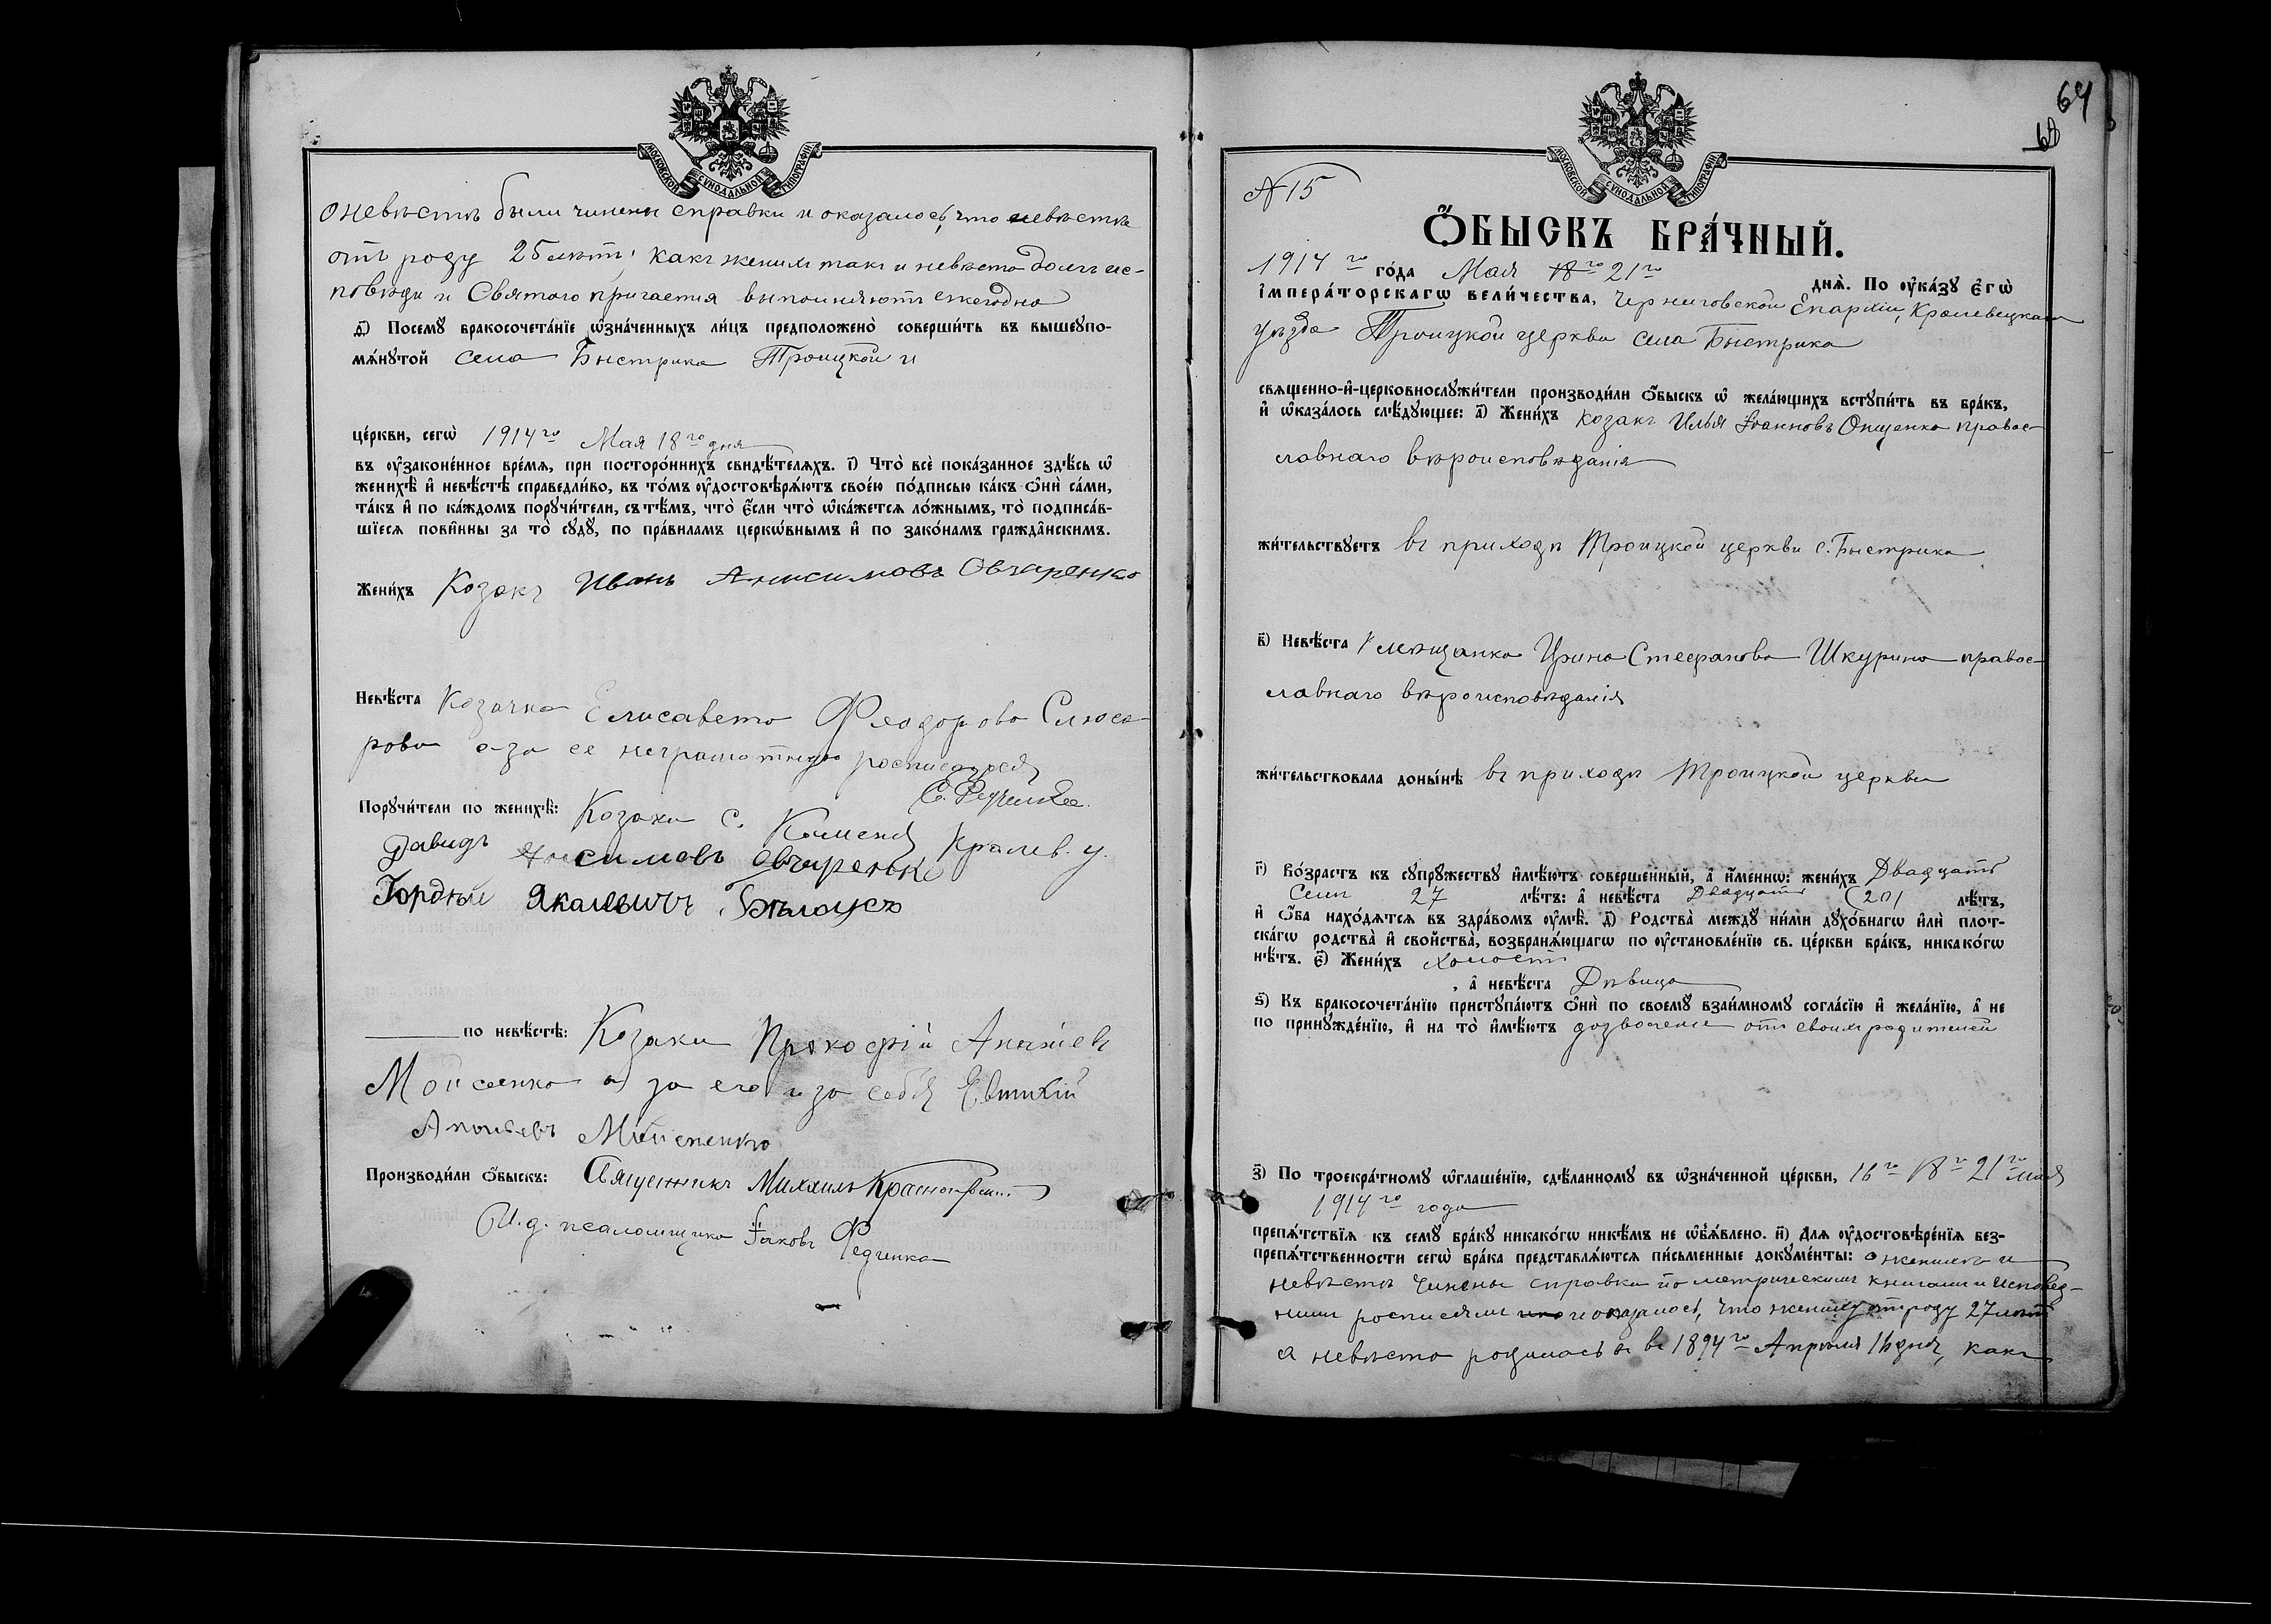 МОСКОВСКОЙ СѴНОДАЛЬНОЙ ТИПОГРАФІИ
о невѣстѣ были чинены справки и оказалось, что невѣстѣ
отъ роду 25 лѣтъ; какъ женихъ такъ и невѣста долгъ ис-
повѣди и Святого причастія выполняютъ ежегодно
ѳ҃) Посемꙋ̀ бракосочета́нїе ѡ҆зна́ченныхъ ли́цъ предположено̀ соверши́ть въ вышеꙋпо-
мѧ́нꙋтой села Быстрика Троицкой и
це́ркви, сегѡ̀ 1914го Мая 18го дня
въ ᲂу҆законе́нное вре́мѧ, при посторо́ннихъ свидѣ́телѧхъ. і҃) Что̀ всѐ пока́занное здѣ́сь ѡ҆
женихѣ̀ и҆ невѣ́стѣ справедли́во, въ то́мъ ᲂу҆достовѣрѧ́ютъ свое́ю по́дписью ка́къ ѻ҆нѝ са́ми,
та́къ и҆ по ка́ждомъ порꙋчи́тели, съ тѣ́мъ, что̀ є҆́сли что̀ ѡ҆ка́жетсѧ ло́жнымъ, то̀ подписа́в-
шїесѧ пови́нны за то̀ сꙋдꙋ̀, по пра́виламъ церкѡ́внымъ и҆ по зако́намъ гражда́нскимъ.
Жени́хъ Козакъ Иванъ Анисимовъ Овчаренко
Невѣ́ста Козачка Елисавета Феодорова Слюса-
рова а за ее неграмотную росписался
С. Редченко.
Порꙋчи́тели по женихѣ̀: Козаки с. Камень Кралев. у.
Давидъ Анисимовъ Овчаренько
Гордѣй Якалевичъ Бѣлоусъ
по невѣ́стѣ: Козаки Прокофій Ананіевъ
Мойсеенко а за его и за себя Евтихій
Ананьевъ Мойсеенко
Производи́ли ѻ҆́быскъ: Священникъ Михаилъ
И.д. псаломщика Іаковъ Федченко
64
63
МОСКОВСКОЙ СѴНОДАЛЬНОЙ ТИПОГРАФІИ
№ 15
Ѻ҆́БЫСКЪ БРА́ЧНЫЙ.
1914го го́да Мая 18го 21го днѧ̀. По ᲂу҆ка́зꙋ є҆гѡ̀
і҆мпера́торскагѡ вели́чества, Черниговской Епархіи, Кролевецкаго
уѣзда Троицкой церкви села Быстрика
свѧщенно-и҆-церковнослꙋжи́тели производи́ли ѻ҆́быскъ ѡ҆ жела́ющихъ встꙋпи́ть въ бра́къ,
и҆ ѡ҆каза́лось слѣ́дꙋющее: а҃) Жени́хъ козакъ Илья Іоанновъ Онищенко правос-
лавнаго вѣроисповѣданія
жи́тельствꙋетъ въ приходѣ Троицкой церкви с. Быстрика
в҃) Невѣ́ста мѣщанка Ирина Стефанова Шкурина правос-
лавнаго вѣроисповѣданія
жи́тельствовала доны́нѣ въ приходѣ Троицкой церкви
г҃) Во́зрастъ къ сꙋпрꙋ́жествꙋ и҆мѣ́ютъ соверше́нный, а҆ и҆́меннѡ: жени́хъ Двадцать
семь 27 лѣ́тъ: а҆ невѣ́ста Двадцать (20) лѣ́тъ,
и҆ ѻ҆́ба нахо́дѧтсѧ въ здра́вомъ ᲂу҆мѣ̀. д҃) Родства̀ междꙋ̀ ни́ми дꙋхо́внагѡ и҆лѝ плот-
ска́гѡ родства̀ и҆ сво́йства̀, возбранѧ́ющагѡ по ᲂу҆становле́нїю св. це́ркви бра́къ, никако́гѡ
нѣ́тъ. є҃) Жени́хъ холостъ
, а҆ невѣ́ста Дѣвица
ѕ҃) Къ бракосочета́нїю пристꙋпа́ютъ ѻ҆нѝ по своемꙋ̀ взаи́мномꙋ согла́сїю и҆ жела́нїю, а҆ не
по принꙋжде́нїю, и҆ на то̀ и҆мѣ́ютъ дозволение отъ своихъ родителей
з҃) По троекра́тномꙋ ѡ҆глаше́нїю, сдѣ́ланномꙋ въ ѡ҆зна́ченной це́ркви, 16го 18го 21го мая
1914го года
препѧ́тствїѧ къ семꙋ̀ бра́кꙋ никако́гѡ никѣ́мъ не ѡ҆б̾ѧ́влено. и҃) Длѧ ᲂу҆достовѣре́нїѧ без-
препѧ́тственности сегѡ̀ бра́ка представлѧ́ютсѧ пи́сьменные докꙋме́нты: о женихѣ и
невѣстѣ чинены справки по метрическимъ книгамъ и исповед-
нымъ росписямъ и оказалось, что жениху отъ роду 27 лѣтъ
а невѣста родилась въ 1894го Апрѣля 16 дня, какъ